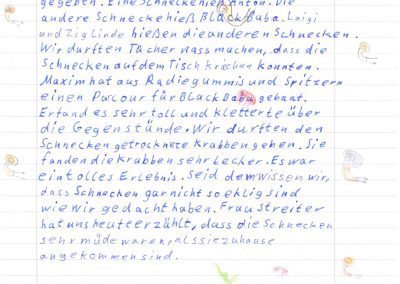 gegeben. Eine Schnecke hieß Anton. Die
andere Schnecke hieß Black Buba. Luigi
und Ziglinde hießen die anderen Schnecken.
Wir durften Tücher nass machen, dass die
Schnecken auf dem Tisch krichen konnten.
Maxim hat aus Radiegummis und Spitzern
einen Parcour für Black Buba gebaut.
Er fand es sehr toll und kletterte über
die Gegenstünde. Wir durften den
Schnecken getrocknete Krabben geben. Sie
fanden die krabben sehr lecker. Es war
ein tolles Erlebnis. Seid dem wissen wir,
dass Schnecken gar nicht so eklig sind
wie wir gedacht haben. Frau Streiter
hat uns heute erzählt, dass die Schnecken
sehr müde waren, als sie zuhause
angekommen sind.